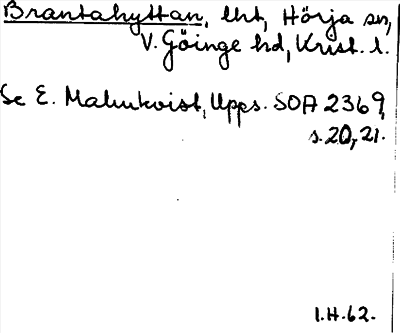 Brantahyttan, lht, Hörja sn,
V. Göinge hd, Krist. l.
Se E. Malmkvist, Upps. SOA 2369,
s. 20, 21.
I.H.62.